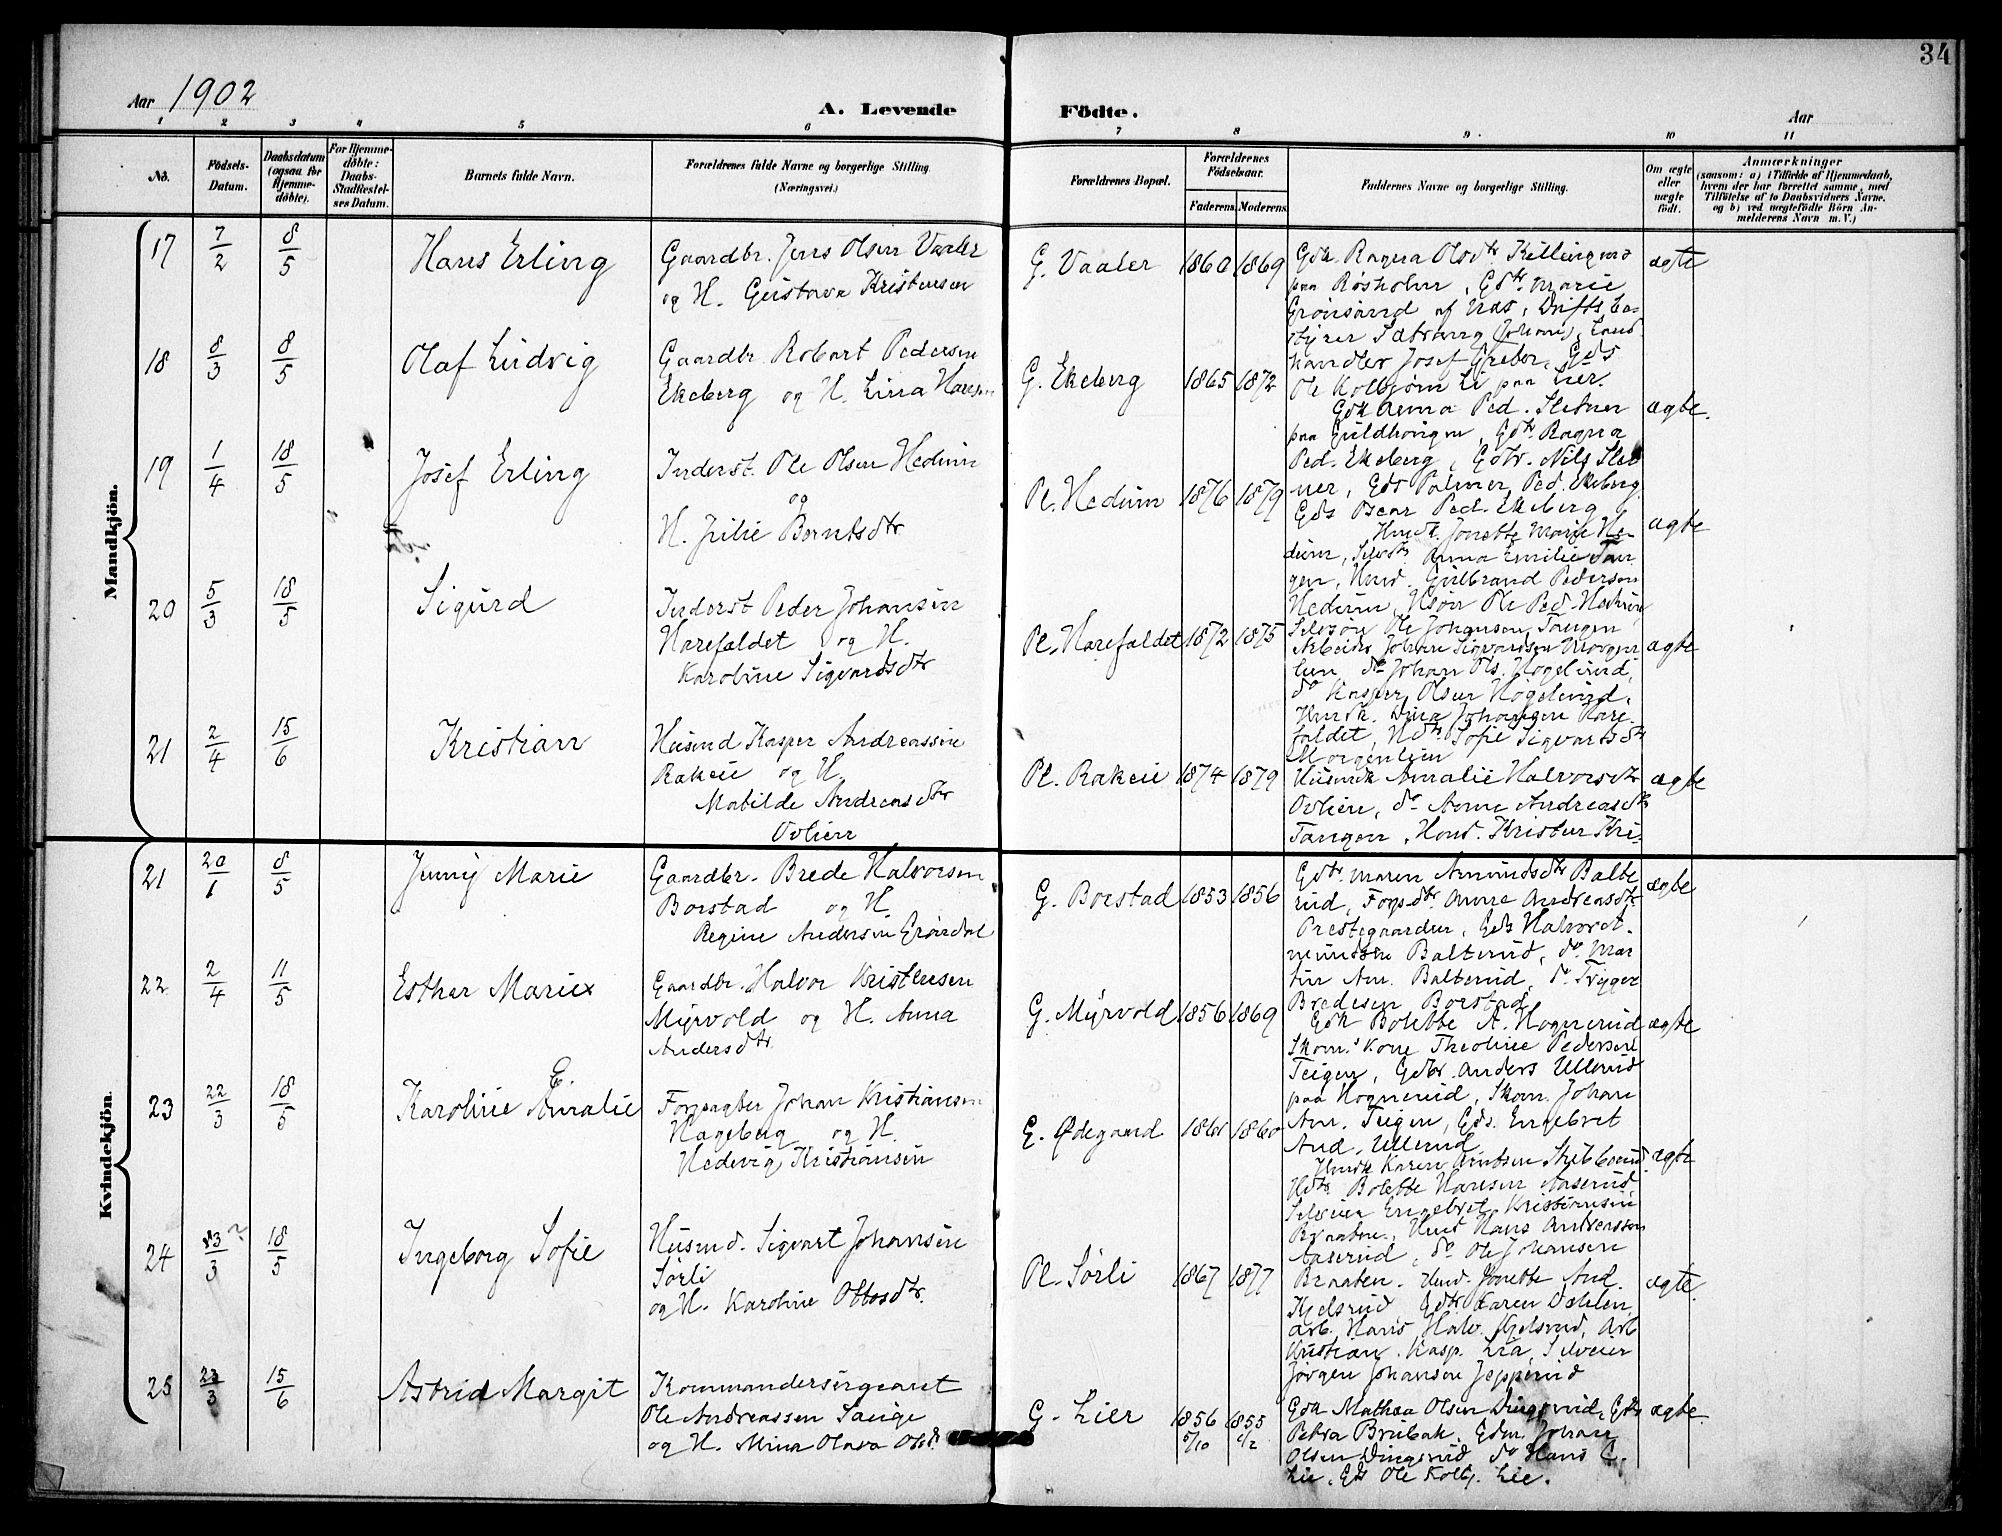 34
Aar 1902
A. Levende Födte.
Aar
1 2 3 4 5 6 7 8 9 10 11
No.
Födsels-Datum.
Daabsdatum (ogsaa for Hjemme-döbte).
For Hjemme-döbte: Daabs-Stadfæstel-ses Datum.
Barnets fulde Navn.
Forældrenes fulde Navne og borgerlige Stilling.
(Næringsvei.)
Forældrenes Bopæl.
Forældrenes Födselsaar.
Faderens. Moderens.
Faddernes Navne og borgerlige Stilling.
Om ægte eller uægte födt.
Anmærkninger
(saasom: a) i Tilfælde af Hjemmedaab,
hvem der har forrettet samme, med
Tilföielse af to Daabsvidners Navne,
og b) ved uægtefödte Börn An-
melderens Navn m. V.)
Mandkjön.
17 7/2 8/5 Hans Erling
Gaardbr. Jens Olsen Vaaler
og H. Gustava Kristensen
G. Vaaler 1860 1869
Gdk. Ragna Olsdtr Killingmo
paa Rosholm, Gdtr. Marie
Grönsand af Næs, Driftsbe-
styrer Sætrang (Johan), Land
handler Josef Greber, Gds
Ole Kolbjörn Li paa Lier.
ægte
18 8/3 8/5 Olaf Ludvig
Gaardbr. Robart Pedersen
Ekeberg og H. Lina Hansen
G. Ekeberg 1865 1872
Gdk Anna Ped. Sletner
paa Guldhaugen, Gdtr. Ragna
Ped. Ekeberg, Gdbr. Nils Slet
ner, Gds Palmer Ped. Ekeberg
Gds Oscar Ped. Ekeberg
ægte.
19 1/4 18/5 Josef Erling
Inderst. Ole Olsen Hedium
og
H. Julie Berntsdtr
Pl. Hedium 1876 1879
Husmk. Jonette Marie He-
dium, Selvdtr. Anna Emilie Tan
gen, Husmd. Gulbrand Pedersen
Hedium, Hsön Ole Ped. Hedium
Selvsön Ole Johansen Tangen
ægte
20 5/3 18/5 Sigurd
Inderst Peder Johansen
Harefaldet og H.
Karoline Sigvardsdtr
Pl. Harefaldet 1872 1875
Arbeider Johan Sigvardsen Morgen
lien do Johan Ols. Hogelund,
do Kasper Olsen Hogelund,
Husmk. Dina Johansen Hare-
faldet, Hdtr Sofie Sigvardsdtr
Morgenlien
ægte
21 2/4 15/6 Kristian
Husmd Kasper Andreassen
Rakeie og H.
Matilde Andreasdtr
Ovlien
Pl. Rakeie 1874 1879
Husmk Amalie Halvorsdtr
Ovlien, do Anne Andreasdtr
Tangen, Hsmd. Kristen Kri-
ægte
Kvindekjön.
21 20/1 8/5 Jenny Marie
Gaardbr. Brede Halvorsen
Borstad og H.
Regine Andersen Gröndal
G. Borstad 1853 1856
Gdtr. Maren Amundsdtr Balte
rud, Forpdtr. Anne Andreasdtr
Prestegaarden, Gds Halvor A-
mundsen Balterud, do Mar
tin Am. Balterud, do Trygve
Bredesen Borstad
ægte
22 2/4 11/5 Esther Mariex
Gaardbr. Halvor Kristensen
Myrvold og H. Anna
Andersdtr
G. Myrvold 1856 1869
Gdk Bolette A. Hognerud
Skom.s Kone Theoline Pedersen
Teigen, Gdbr. Anders Ullerud
paa Hognerud, Skom. Johan
Am. Teigen, Gds. Engebret
And. Ullerud
ægte
23 22/3 18/5 Karoline E. Amalie
Forpagter Johan Kristiansen
Hageberg og H.
Hedevig Kristiansen
G. Ødegaard 1861 1860
Husmk Karen Arntsen Skibberud
Hdtr. Bolette Hansen Aaserud
Selveier Engebret Kristiansen
Braaten, Husmd Hans Andreassen
Aaserud, do Ole Johansen
Braaten.
ægte
24 23/3 ? 18/5 Ingeborg Sofie
Husmd. Sigvart Johansen
Sørli
og H. Karoline Ottosdtr.
Pl. Sørli 1867 1877
Husmd. Jonette And.
Kjelsrud Gdtr Karen Dælien,
Arb. Hans Halv. Kjelsrud, Arb
Kristian Kasp. Lia, Selveier
Jörgen Johansen Jepperud
ægte.
25 23/3 15/6 Astrid Margit
Kommandersergeant
Ole Andreassen Sauge
og H. Mina Olava Olsd.
G. Lier 1856 5/10 1855 1/2
Gdk Mathea Olsen Dingsrud, Gdtr
Petra Brubak, Gdm. Johan
Olsen Dingsrud do Hans C.
Lie, Gds Ole Kolbj. Lie.
ægte